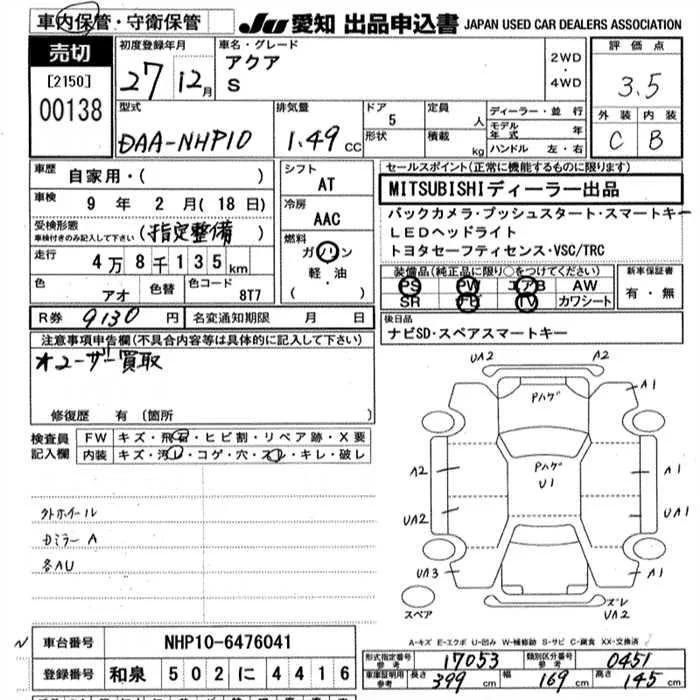 車内保管・守衛保管
JU 愛知 出品申込書 JAPAN USED CAR DEALERS ASSOCIATION
売切
[2150]
00138
初度登録年月
27 12月
車名・グレード
アクア
S
2WD
・
4WD
評価点
3.5
外装 内装
C B
型式
DAA-NHP10
排気量
1.49 CC
ドア
5
形状
定員
人
積載
kg
ディーラー・並行
モデル年式 年
ハンドル 左・右
車歴
自家用・( )
車検
9年 2月(18日)
受検形態
車検付きのみ記入して下さい
(指定整備)
走行
4万8千135km
色
アオ
色替
色コード
8T7
シフト
AT
冷房
AAC
燃料
ガソリン
軽・油
( )
セールスポイント(正常に機能するものに限ります)
MITSUBISHIディーラー出品
バックカメラ・プッシュスタート・スマートキー
LEDヘッドライト
トヨタセーフティセンス・VSC/TRC
装備品(純正品に限り○をつけてください)
PS PW エアB AW
SR TV カワシート
新車保証書
有・無
R券 9130 円
名変通知期限 月 日
後日品
ナビSD・スペアスマートキー
注意事項申告欄(不具合内容等は具体的に記入して下さい)
ユーザー買取
修復歴 有 〔箇所
検査員記入欄
FW キズ・飛石・ヒビ割・リペア跡・X要
内装 キズ・汚レ・コゲ・穴・スレ・キレ・破レ
外ホイール
カミラーA
各AU
UA2 A2
Pハゲ A1
A2 Pハゲ
U1 UA1
UA2 A1
UA3 A1
スペア
ズレ
UA2
A-キズ E-エクボ U-凹み W-補修跡 S-サビ C-腐食 XX-交換済
N 車台番号 NHP10-6476041
登録番号 和泉 502 に 4416
形式指定番号 参考 17053
類別区分番号 参考 0451
車庫証明用 参考 長さ 399 cm 幅 169 cm 高さ 145 cm